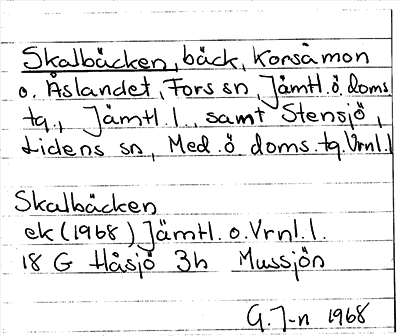 Skalbäcken, bäck, Korsåmon
o. Åslandet, Fors sn, Jämtl. ö. doms.
tg., Jämtl. l., samt Stensjö,
Lidens sn, Med. ö. doms. tg. Vrnl. l.
Skalbäcken
ek (1968) Jämtl. o. Vrnl. l.
18 G Håsjö 3h Mussjön
G. J-n 1968